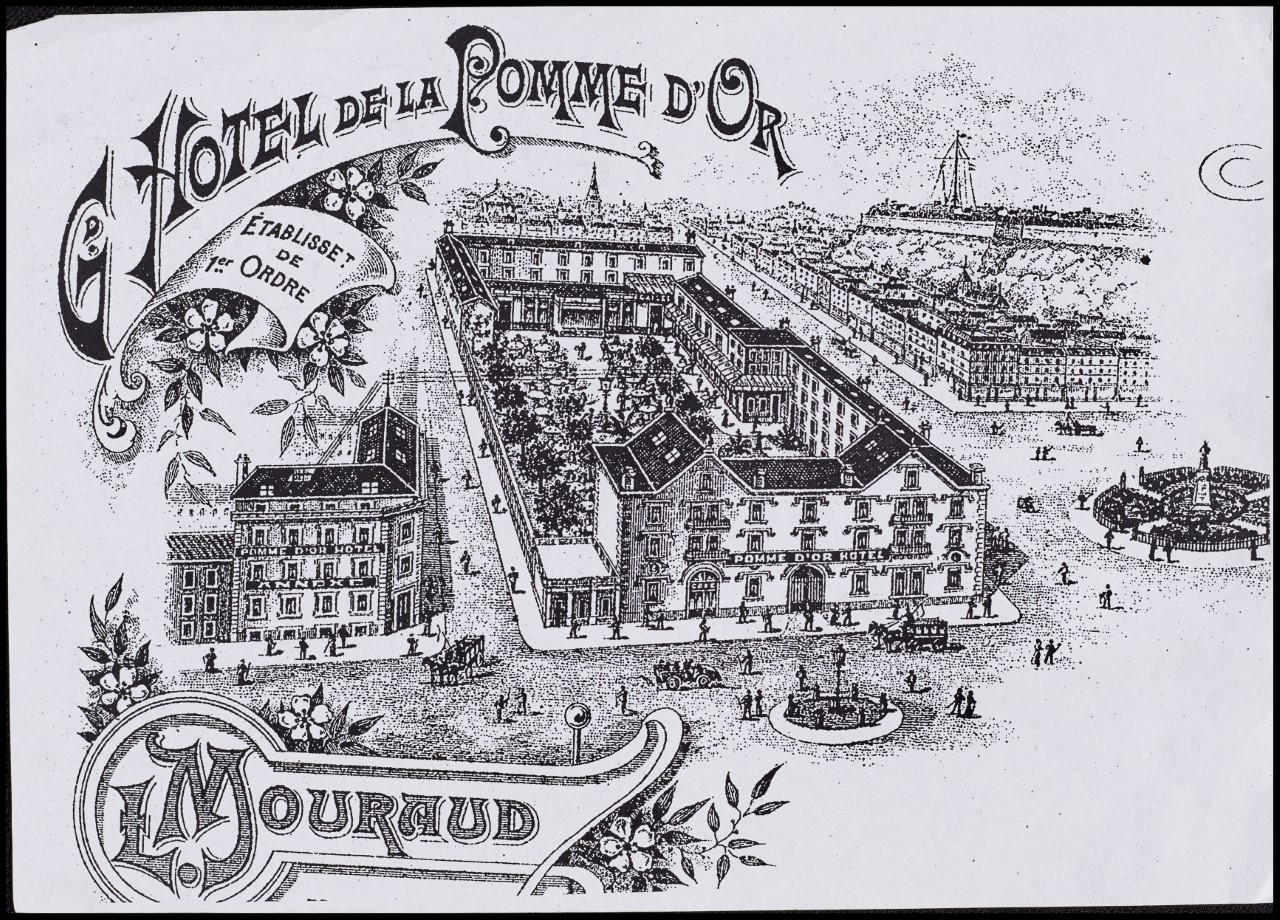 Gd HOTEL DE LA POMME D'OR
ÉTABLISSET
DE
1er ORDRE
POMME D'OR HOTEL
ANNEXE
POMME D'OR HOTEL
E. MOURAUD